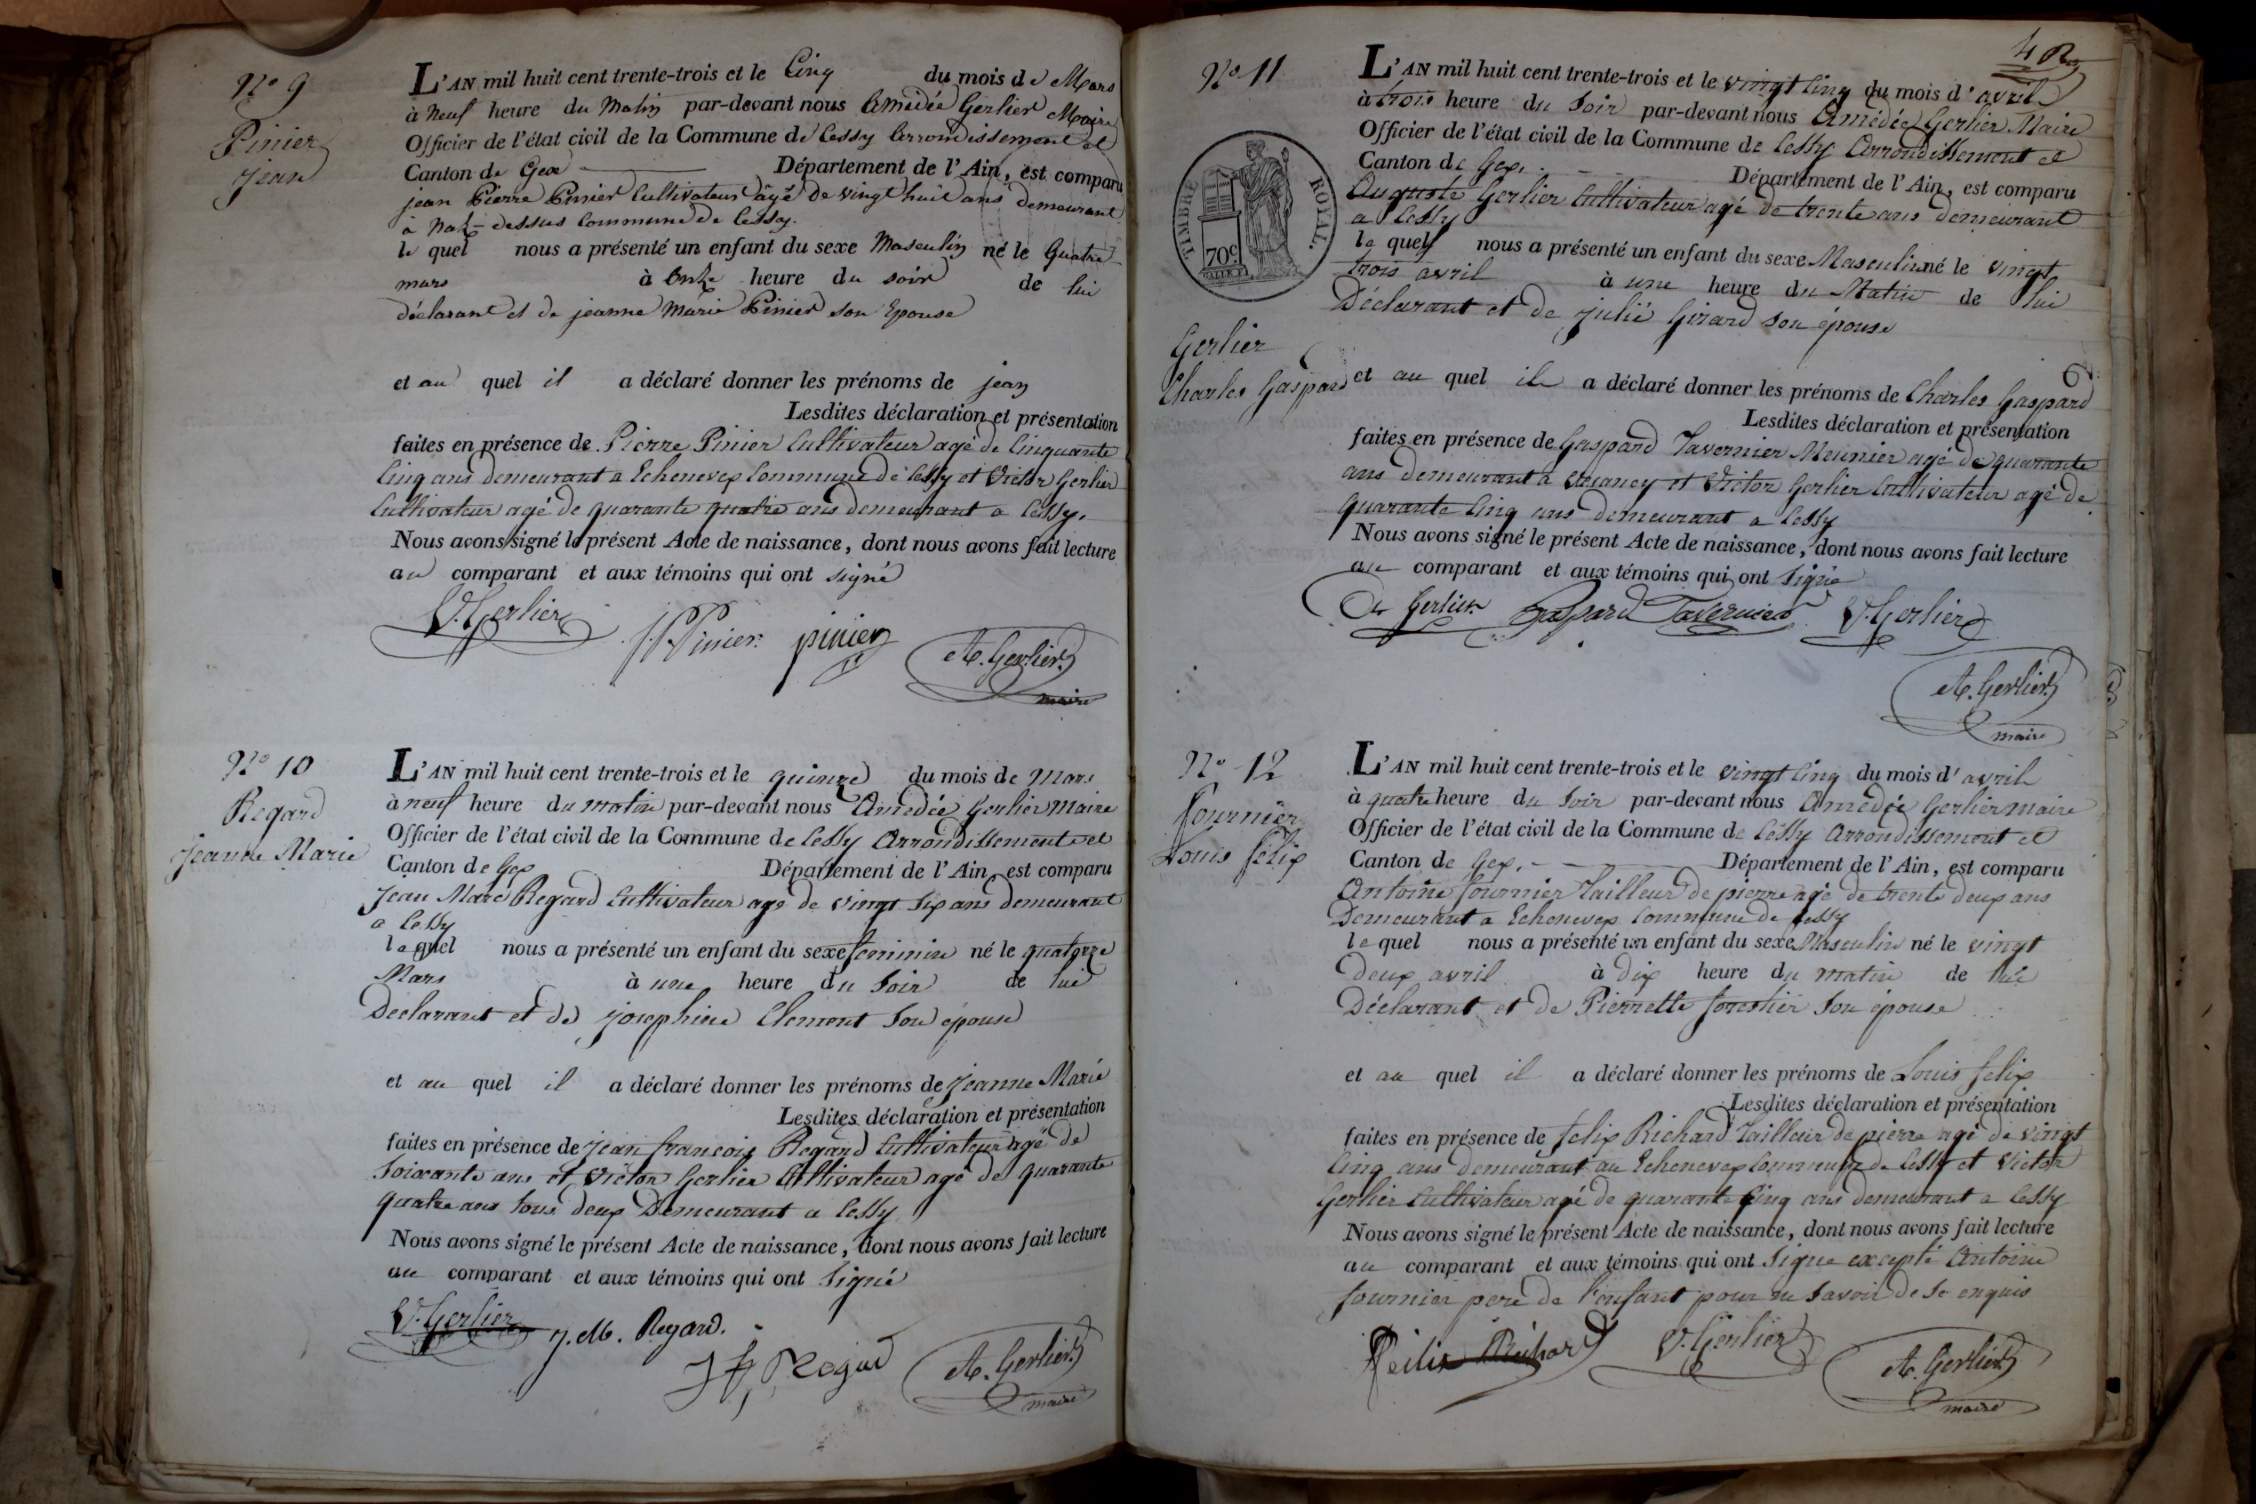 N° 9
Pinier
jean
L'AN mil huit cent trente-trois et le Cinq du mois de Mars
à Neuf heure du Matin par-devant nous Amédée Gerlier Maire
Officier de l'état civil de la Commune de Cessy Arrondissement et
Canton de Gex Département de l'Ain, est comparu
jean Pierre Pinier Cultivateur âgé de vingt huit ans demeurant
à dessus Commune de Cessy.
le quel nous a présenté un enfant du sexe Masculin né le Quatre
mars à Onze heure du soir de lui
déclarant et de jeanne Marie Pinier son Epouse
et au quel il a déclaré donner les prénoms de jean
Lesdites déclaration et présentation
faites en présence de Pierre Pinier Cultivateur agé de Cinquante
Cinq ans demeurant a Echenevex Commune de Cessy et Victor Gerlier
Cultivateur agé de quarante quatre ans demeurant a Cessy.
Nous avons signé le présent Acte de naissance, dont nous avons fait lecture
au comparant et aux témoins qui ont signé
V. Gerlier J. P. Pinier pinier A. Gerlier
maire
N° 10
Regard
Jeanne Marie
L'AN mil huit cent trente-trois et le quinze du mois de Mars
à neuf heure du matin par-devant nous Amédée Gerlier Maire
Officier de l'état civil de la Commune de Cessy Arrondissement et
Canton de Gex Département de l'Ain, est comparu
Jean Marc Regard Cultivateur age de vingt six ans demeurant
a Cessy
le quel nous a présenté un enfant du sexe feminin né le quatorze
Mars à une heure du Soir de lui
Déclarant et de josephine Clement Son épouse
et au quel il a déclaré donner les prénoms de Jeanne Marie
Lesdites déclaration et présentation
faites en présence de jean francois Regard Cultivateur agé de
Soixante ans et Victor Gerlier Cultivateur agé de quarante
quatre ans tous deux Demeurant a Cessy
Nous avons signé le présent Acte de naissance, dont nous avons fait lecture
au comparant et aux témoins qui ont Signé
V. Gerlier J. M. Regard.
J f Regard A. Gerlier
maire
N° 11
TIMBRE ROYAL.
70c
Gerlier
Charles Gaspard
L'AN mil huit cent trente-trois et le vingt Cinq du mois d'avril
à trois heure du Soir par-devant nous Amédée Gerlier Maire
Officier de l'état civil de la Commune de Cessy Arrondissement et
Canton de Gex. Département de l'Ain, est comparu
Auguste Gerlier Cultivateur agé de trente ans demeurant
a Cessy
le quel nous a présenté un enfant du sexe Masculin né le vingt
trois avril à une heure du Matin de lui
Déclarant et de julie Girard son épouse
et au quel il a déclaré donner les prénoms de Charles Gaspard
Lesdites déclaration et présentation
faites en présence de Gaspard Tavernier Meunier agé de quarante
ans demeurant a et Victor Gerlier Cultivateur agé de
quarante Cinq ans demeurant a Cessy
Nous avons signé le présent Acte de naissance, dont nous avons fait lecture
au comparant et aux témoins qui ont Signé
Gerlier Gaspard Tavernier V. Gerlier
A. Gerlier
maire
N° 12
Fournier
Louis félix
L'AN mil huit cent trente-trois et le vingt Cinq du mois d'avril
à quatre heure du Soir par-devant nous Amédée Gerlier maire
Officier de l'état civil de la Commune de Cessy Arrondissement et
Canton de Gex. Département de l'Ain, est comparu
Antoine fournier Tailleur de pierre agé de trente deux ans
Demeurant a Echenevex Commune de Cessy
le quel nous a présenté un enfant du sexe Masculin né le vingt
Deux avril à dix heure du matin de lui
Déclarant et de Pierrette forestier Son épouse
et au quel il a déclaré donner les prénoms de Louis felix
Lesdites déclaration et présentation
faites en présence de felix Richard Tailleur de pierre agé de vingt
Cinq ans demeurant au Echenevex Commune de Cessy et Victor
Gerlier Cultivateur agé de quarante Cinq ans demeurant a Cessy
Nous avons signé le présent Acte de naissance, dont nous avons fait lecture
au comparant et aux témoins qui ont Signe excepté Antoine
fournier pere de l'enfant pour ne Savoir de Ce enquis
Félix Richard V. Gerlier A. Gerlier
maire